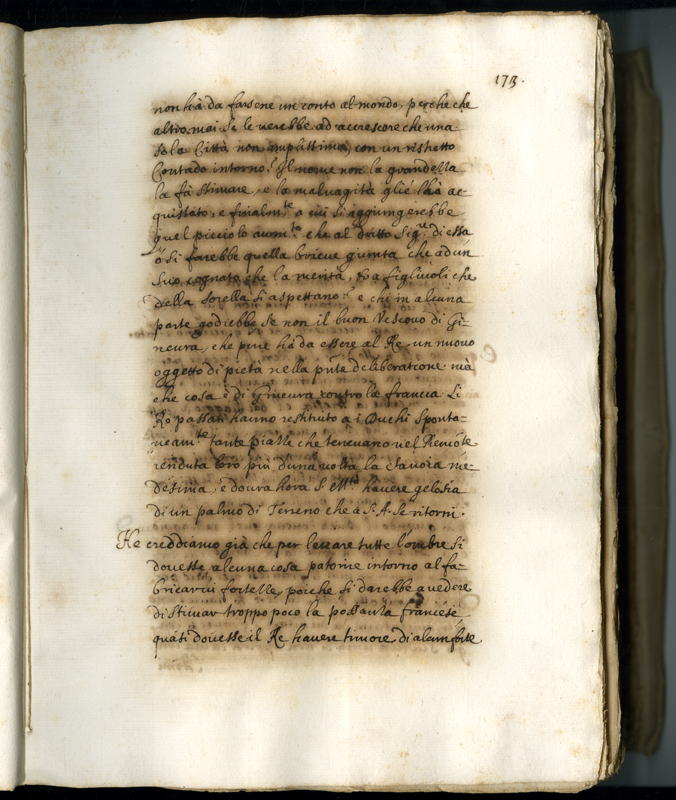 173.
non hà da farsene un conto al mondo, perche che
altro mai se le verebbe ad accrescere che una
sola Città non amplissima, con un ristretto
Contado intorno? Il nome non la grandezza
la fà stimare, e la malvagità gliè l'hà ac-
quistato, e finalm.te a cui si aggiungerebbe
quel picciolo aum.to che al dritto Sig.re di essa
ò si farebbe quella brieve giunta che ad un
suo cognato che la merita, & a figliuoli che
della sorella si aspettano? e chi in alcuna
parte godrebbe se non il buon Vescovo di Gi-
nevra, che pure hà da essere al Re un nuovo
oggetto di pietà nella pnte deliberatione mà
che cosa è di Ginevra contro la francia Li
Re passati hanno restituito a i Duchi sponta-
neam.te tante piazze che tenevano nel Piemōte
renduta loro più d'una volta la Savoia me-
desima, e dovra hora S. M.tà havere gelosia
di un palmo di Terreno che a S. A. se ritorni.
Ne creddiamo già che per levare tutte l'ombre si
dovesse alcuna cosa patorire intorno al fa-
bricarvi fortezze, poiche si darebbe a vedere
di stimar troppo poco la possanza francese
quasi dovesse il Re havere timore di alcun forte